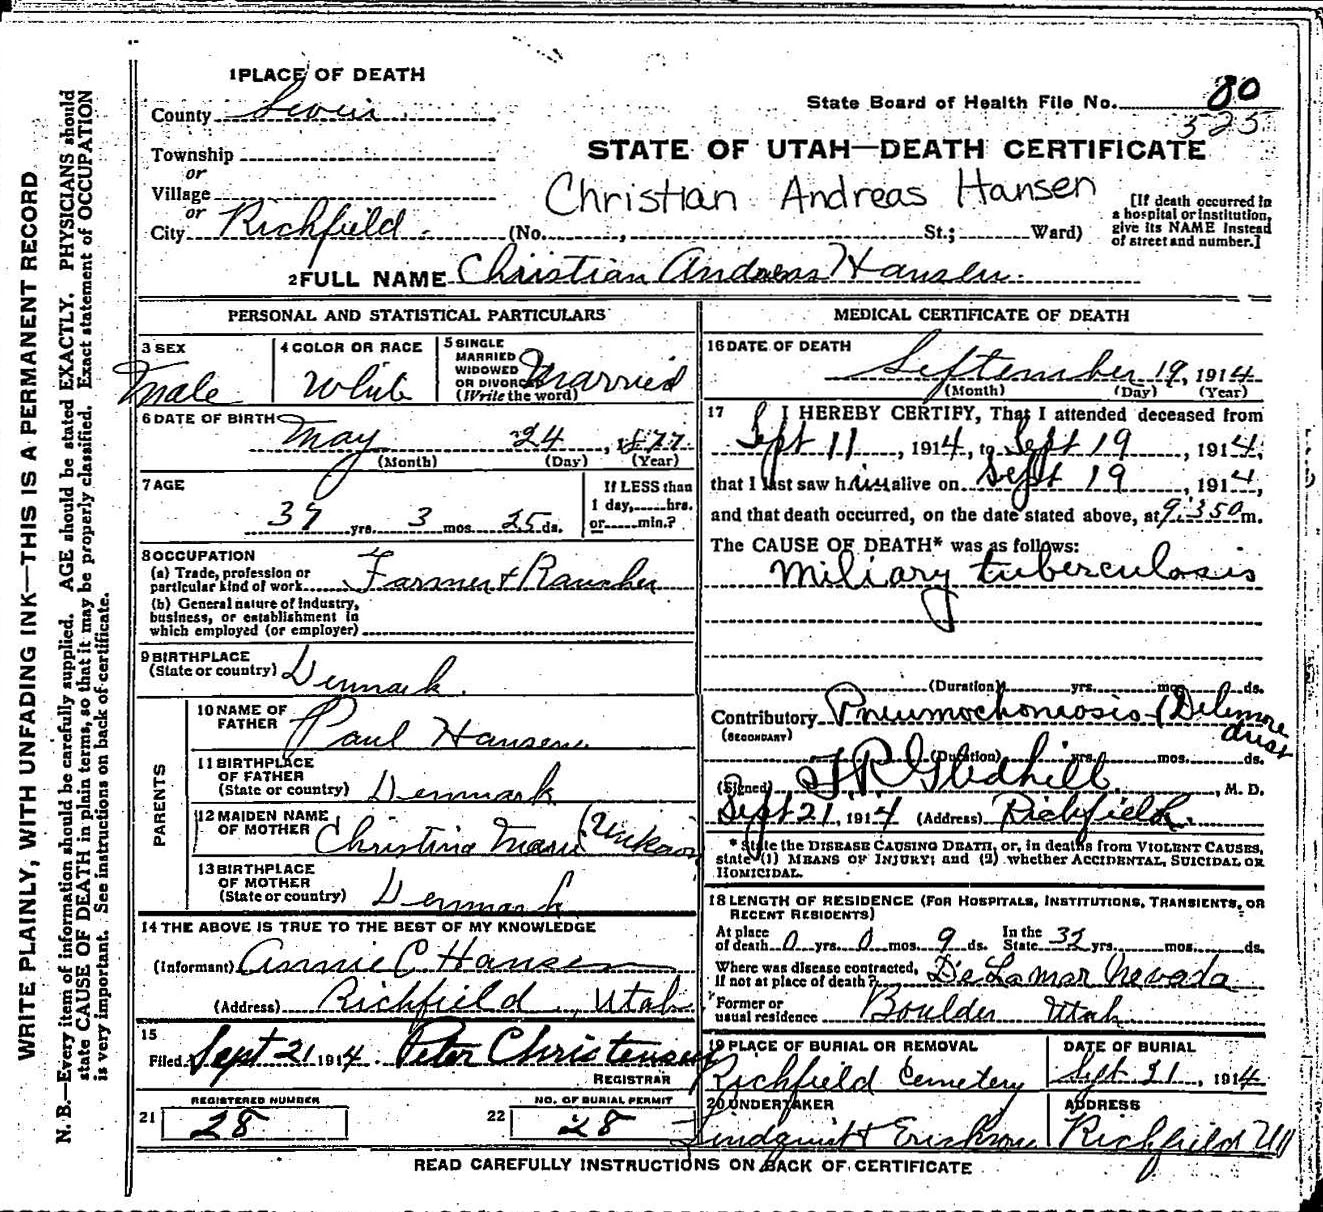 1 PLACE OF DEATH
County Sevier
State Board of Health File No. 80
325
Township
or
Village
or
City Richfield
STATE OF UTAH—DEATH CERTIFICATE
Christian Andreas Hansen
(No. , St.; Ward)
[If death occurred in
a hospital or institution,
give its NAME instead
of street and number.]
2 FULL NAME Christian Andreas Hansen
PERSONAL AND STATISTICAL PARTICULARS
3 SEX
Male
4 COLOR OR RACE
White
5 SINGLE
MARRIED
WIDOWED
OR DIVORCED
(Write the word)
Married
6 DATE OF BIRTH
May 24, 1877
(Month) (Day) (Year)
7 AGE
37 yrs. 3 mos. 25 ds.
If LESS than
1 day, hrs.
or min.?
8 OCCUPATION
(a) Trade, profession or
particular kind of work Farmer & Rancher
(b) General nature of industry,
business, or establishment in
which employed (or employer)
9 BIRTHPLACE
(State or country) Denmark.
PARENTS
10 NAME OF
FATHER Paul Hansen
11 BIRTHPLACE
OF FATHER
(State or country) Denmark
12 MAIDEN NAME
OF MOTHER Christina Marie (Unknown
13 BIRTHPLACE
OF MOTHER
(State or country) Denmark
14 THE ABOVE IS TRUE TO THE BEST OF MY KNOWLEDGE
(Informant) Annie C Hansen
(Address) Richfield, Utah
15
Filed Sept 21 1914. Peter Christensen
REGISTRAR
21 REGISTERED NUMBER
28
22 NO. OF BURIAL PERMIT
28
MEDICAL CERTIFICATE OF DEATH
16 DATE OF DEATH
September 19, 1914
(Month) (Day) (Year)
17 I HEREBY CERTIFY, That I attended deceased from
Sept 11, 1914, to Sept 19, 1914,
that I last saw him alive on Sept 19, 1914,
and that death occurred, on the date stated above, at m.
The CAUSE OF DEATH* was as follows:
Miliary tuberculosis
(Duration) yrs. mos. ds.
Contributory Pneumochoniosis (Delemore
dust
(SECONDARY)
(Duration) yrs. mos. ds.
(Signed) Gledhill, M. D.
Sept 21, 1914 (Address) Richfield.
* State the DISEASE CAUSING DEATH, or, in deaths from VIOLENT CAUSES,
state (1) MEANS OF INJURY; and (2) whether ACCIDENTAL, SUICIDAL OR
HOMICIDAL.
18 LENGTH OF RESIDENCE (FOR HOSPITALS, INSTITUTIONS, TRANSIENTS, OR
RECENT RESIDENTS)
At place
of death 0 yrs. 0 mos. 9 ds. In the
State 32 yrs. mos. ds.
Where was disease contracted,
if not at place of death? De Lamar Nevada
Former or
usual residence Boulder Utah
19 PLACE OF BURIAL OR REMOVAL
Richfield Cemetery
DATE OF BURIAL
Sept 21, 1914
20 UNDERTAKER
Lindquist & Erickson
ADDRESS
Richfield Ut
READ CAREFULLY INSTRUCTIONS ON BACK OF CERTIFICATE
WRITE PLAINLY, WITH UNFADING INK—THIS IS A PERMANENT RECORD
N. B.—Every item of information should be carefully supplied. AGE should be stated EXACTLY. PHYSICIANS should
state CAUSE OF DEATH in plain terms, so that it may be properly classified. Exact statement of OCCUPATION
is very important. See instructions on back of certificate.